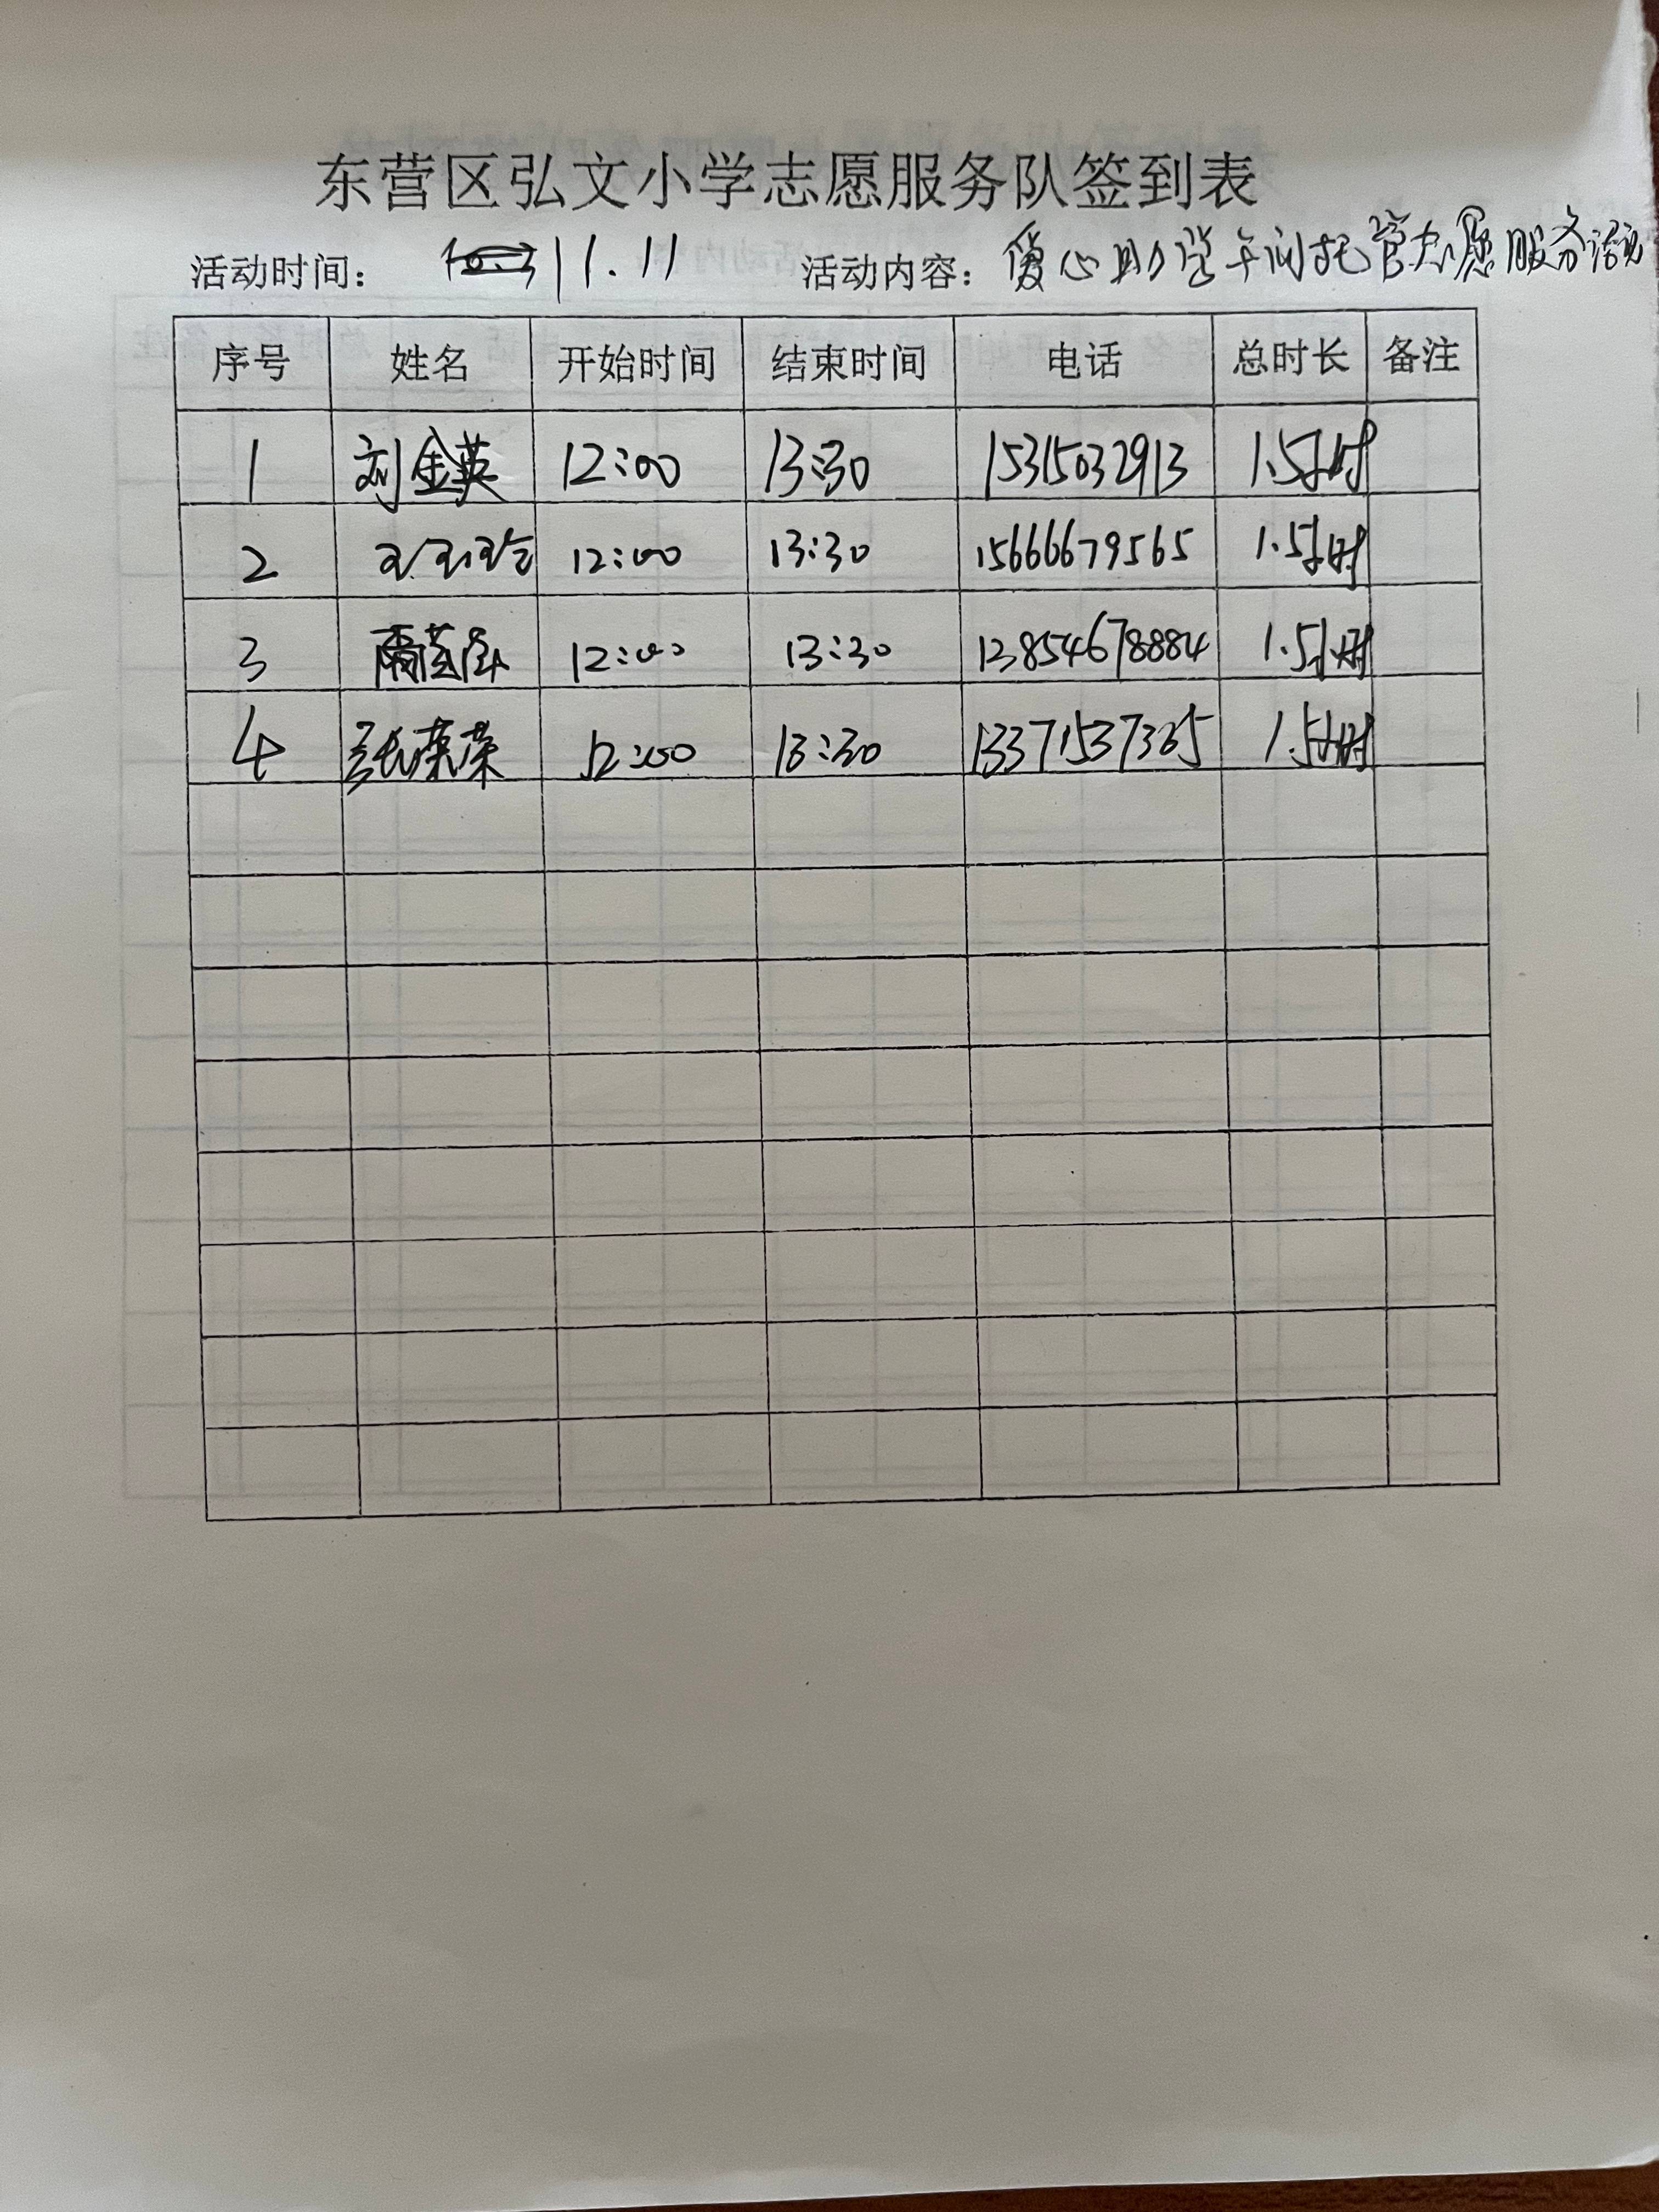 东营区弘文小学志愿服务队签到表
活动时间： 11.11 活动内容：爱心助学午间托管志愿服务活动
序号 姓名 开始时间 结束时间 电话 总时长 备注
1 刘金英 12:00 13:30 15315032913 1.5小时
2 12:00 13:30 15666679565 1.5小时
3 12:00 13:30 13854678884 1.5小时
4 张荣荣 12:00 13:30 13371537365 1.5小时